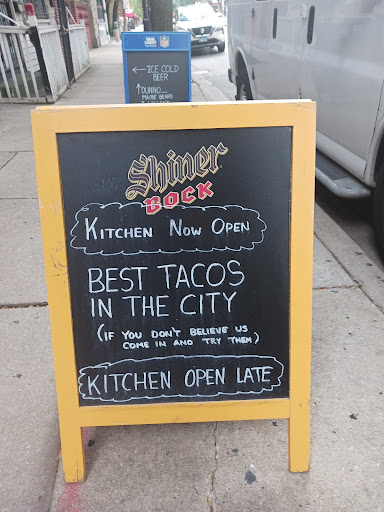 ←ICE COLD
BEER
↑DUNNO...
MAYBE BEARS
Shiner
BOCK
KITCHEN NOW OPEN
BEST TACOS
IN THE CITY
(IF YOU DON'T BELIEVE US
COME IN AND TRY THEM)
KITCHEN OPEN LATE